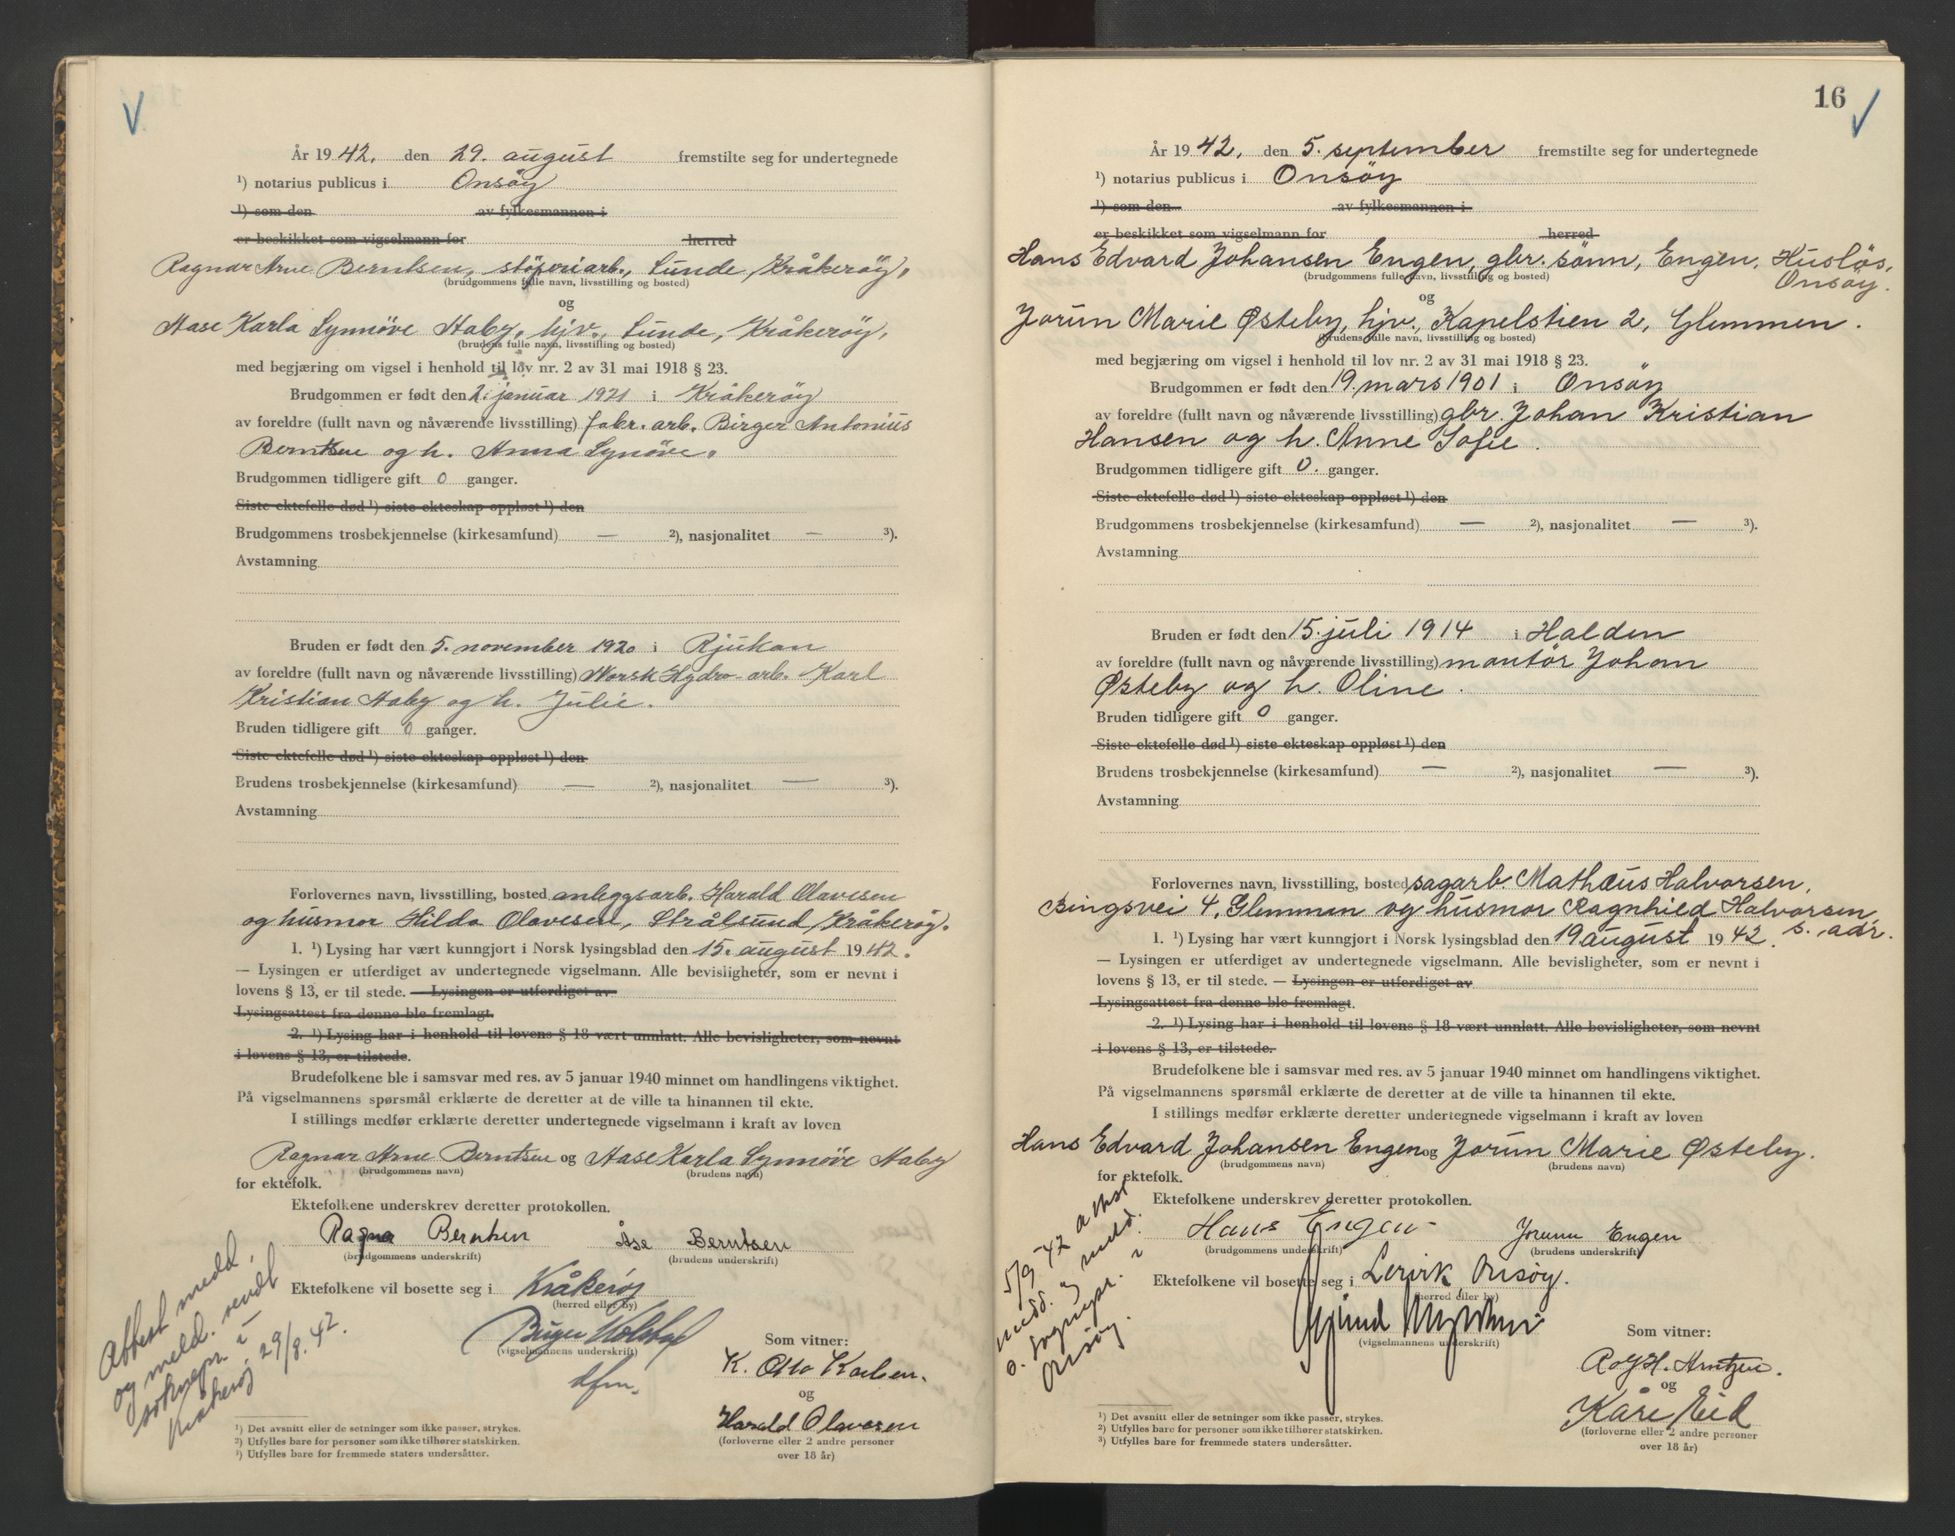 År 1942, den 29. august fremstilte seg for undertegnede
¹) notarius publicus i Onsøy
¹) som den av fylkesmannen i
er beskikket som vigselmann for herred
Ragnar Arne Berntsen, støperiarb., Lunde, Kråkerøy,
(brudgommens fulle navn, livsstilling og bosted)
og
Aase Karla Synnøve Haby, hjv., Lunde, Kråkerøy,
(brudens fulle navn, livsstilling og bosted)
med begjæring om vigsel i henhold til lov nr. 2 av 31 mai 1918 § 23.
Brudgommen er født den 2. januar 1921 i Kråkerøy
av foreldre (fullt navn og nåværende livsstilling) fabr. arb. Birger Antonius
Berntsen og h. Anna Synøve.
Brudgommen tidligere gift 0 ganger.
Siste ektefelle død ¹) siste ekteskap oppløst ¹) den
Brudgommens trosbekjennelse (kirkesamfund) — ²), nasjonalitet — ³).
Avstamning
Bruden er født den 5. november 1920 i Rjukan
av foreldre (fullt navn og nåværende livsstilling) Norsk Hydro-arb. Karl
Kristian Haby og h. Julie.
Bruden tidligere gift 0 ganger.
Siste ektefelle død ¹) siste ekteskap oppløst ¹) den
Brudens trosbekjennelse (kirkesamfund) — ²), nasjonalitet — ³).
Avstamning
Forlovernes navn, livsstilling, bosted anleggsarb. Harald Olavesen
og husmor Hilda Olavesen, Strålsund, Kråkerøy.
1. ¹) Lysing har vært kunngjort i Norsk lysingsblad den 15. august 1942.
— Lysingen er utferdiget av undertegnede vigselmann. Alle bevisligheter, som er nevnt i
lovens § 13, er til stede. — Lysingen er utferdiget av
Lysingsattest fra denne ble fremlagt.
2. ¹) Lysing har i henhold til lovens § 18 vært unnlatt. Alle bevisligheter, som nevnt
i lovens § 13, er tilstede.
Brudefolkene ble i samsvar med res. av 5 januar 1940 minnet om handlingens viktighet.
På vigselmannens spørsmål erklærte de deretter at de ville ta hinannen til ekte.
I stillings medfør erklærte deretter undertegnede vigselmann i kraft av loven
Ragnar Arne Berntsen og Aase Karla Synnøve Haby
(brudgommens navn) (brudens navn)
for ektefolk.
Ektefolkene underskrev deretter protokollen.
Ragnar Berntsen Åse Berntsen
(brudgommens underskrift) (brudens underskrift)
Ektefolkene vil bosette seg i Kråkerøy
(herred eller by)
Birger
(vigselmannens underskrift)
Som vitner:
K. Otto Karlsen.
og
Harald Olavesen
(forloverne eller 2 andre personer
over 18 år)
Attest medd.
og meld. sendt
sokнepr. i
Kråkerøy 29/8. 42.
¹) Det avsnitt eller de setninger som ikke passer, strykes.
²) Utfylles bare for personer som ikke tilhører statskirken.
³) Utfylles bare for fremmede staters undersåtter.
16
År 1942, den 5. september fremstilte seg for undertegnede
¹) notarius publicus i Onsøy
¹) som den av fylkesmannen i
er beskikket som vigselmann for herred
Hans Edvard Johansen Engen, gbr. sønn, Engen, Husløs,
Onsøy.
(brudgommens fulle navn, livsstilling og bosted)
og
Jorun Marie Østeby, hjv., Kapelstien 2, Glemmen.
(brudens fulle navn, livsstilling og bosted)
med begjæring om vigsel i henhold til lov nr. 2 av 31 mai 1918 § 23.
Brudgommen er født den 19. mars 1901 i Onsøy
av foreldre (fullt navn og nåværende livsstilling) gbr. Johan Kristian
Hansen og h. Anne Sofie.
Brudgommen tidligere gift 0. ganger.
Siste ektefelle død ¹) siste ekteskap oppløst ¹) den
Brudgommens trosbekjennelse (kirkesamfund) — ²), nasjonalitet — ³).
Avstamning
Bruden er født den 15. juli 1914 i Halden
av foreldre (fullt navn og nåværende livsstilling) montör Johan
Østeby og h. Oline.
Bruden tidligere gift 0 ganger.
Siste ektefelle død ¹) siste ekteskap oppløst ¹) den
Brudens trosbekjennelse (kirkesamfund) — ²), nasjonalitet — ³).
Avstamning
Forlovernes navn, livsstilling, bosted sagarb. Mathæus Halvorsen,
Bingsvei 4, Glemmen og husmor Ragnhild Halvorsen,
s. adr.
1. ¹) Lysing har vært kunngjort i Norsk lysingsblad den 19 august 1942.
— Lysingen er utferdiget av undertegnede vigselmann. Alle bevisligheter, som er nevnt i
lovens § 13, er til stede. — Lysingen er utferdiget av
Lysingsattest fra denne ble fremlagt.
2. ¹) Lysing har i henhold til lovens § 18 vært unnlatt. Alle bevisligheter, som nevnt
i lovens § 13, er tilstede.
Brudefolkene ble i samsvar med res. av 5 januar 1940 minnet om handlingens viktighet.
På vigselmannens spørsmål erklærte de deretter at de ville ta hinannen til ekte.
I stillings medfør erklærte deretter undertegnede vigselmann i kraft av loven
Hans Edvard Johansen Engen og Jorun Marie Østeby.
(brudgommens navn) (brudens navn)
for ektefolk.
Ektefolkene underskrev deretter protokollen.
Hans Engen Jorunn Engen
(brudgommens underskrift) (brudens underskrift)
Ektefolkene vil bosette seg i Lervik, Onsøy.
(herred eller by)
(vigselmannens underskrift)
Som vitner:
Rolf H. Arntzen.
og
Kåre Eid
(forloverne eller 2 andre personer
over 18 år)
5/9-42 attest
medd. og meld.
s. sognepr. i
Onsøy.
¹) Det avsnitt eller de setninger som ikke passer, strykes.
²) Utfylles bare for personer som ikke tilhører statskirken.
³) Utfylles bare for fremmede staters undersåtter.